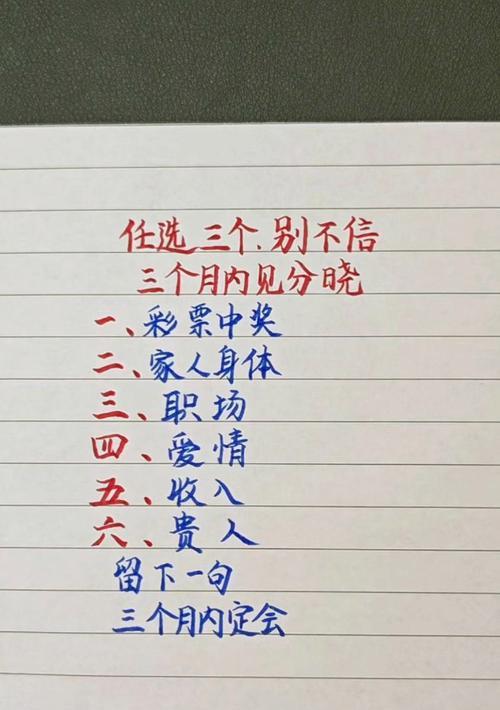 任选三个.别不信
三个月内见分晓
一、彩票中奖
二、家人身体
三、职场
四、爱情
五、收入
六、贵人
留下一句
三个月内定会